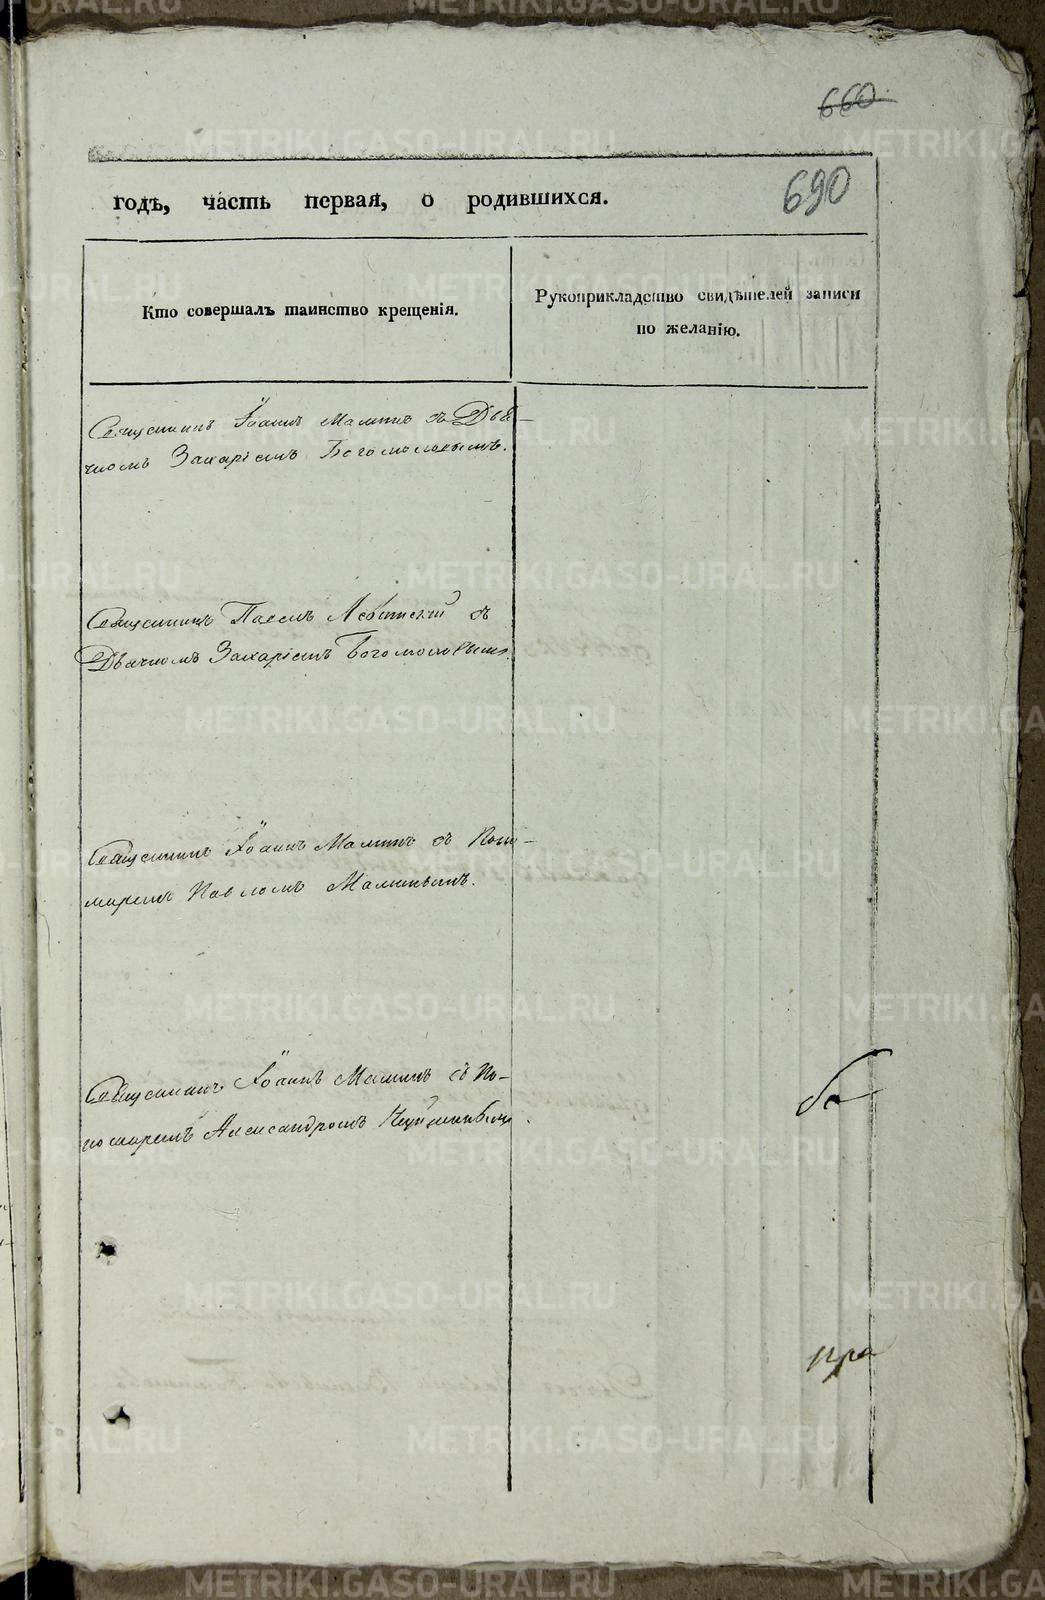 660
690
годѣ, часть первая, о родившихся.
Кто совершалъ таинство крещенія.
Рукоприкладство свидѣтелей записи
по желанію.
Священникъ Іоаннъ Маминъ съ Дья-
чкомъ Захаріемъ Богомоловымъ.
Священникъ Павелъ съ
Дьячкомъ Захаріемъ Богомоловымъ.
Священникъ Іоаннъ Маминъ съ Поно-
маремъ Павломъ Маминымъ.
Священникъ Іоаннъ Маминъ съ По-
номаремъ Александромъ
METRIKI.GASO-URAL.RU